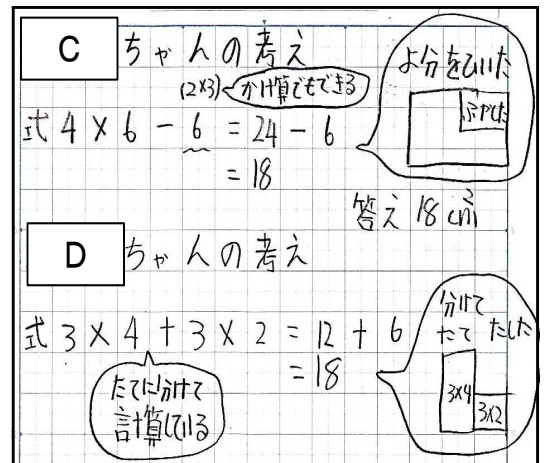 Cちゃんの考え
(2×3)
かけ算でもできる
式 4 × 6 - 6 = 24 - 6
= 18
よ分をひいた
ふやした
答え 18 cm²
Dちゃんの考え
式 3 × 4 + 3 × 2 = 12 + 6
= 18
たてに分けて
計算している
分けて
たて たした
3×4
3×2